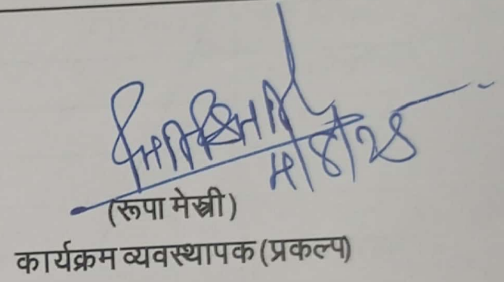 ५/८/२५
(रूपा मेस्त्री)
कार्यक्रम व्यवस्थापक (प्रकल्प)